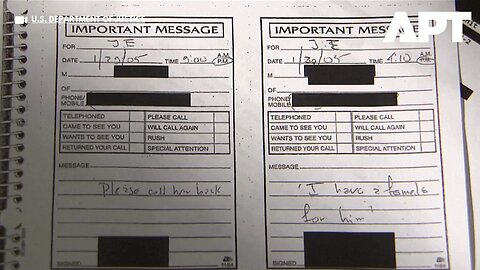 U.S. DEPARTMENT OF JUSTICE
APT
IMPORTANT MESSAGE
FOR J.E
DATE 1/29/05 TIME 9:00 A.M. P.M.
M
OF
PHONE/
MOBILE
TELEPHONED PLEASE CALL
CAME TO SEE YOU WILL CALL AGAIN
WANTS TO SEE YOU RUSH
RETURNED YOUR CALL SPECIAL ATTENTION
MESSAGE
Please call her back
SIGNED
1184
IMPORTANT MESSAGE
FOR J.E
DATE 1/30/05 TIME 4:10 A.M. P.M.
M
OF
PHONE/
MOBILE
TELEPHONED PLEASE CALL
CAME TO SEE YOU WILL CALL AGAIN
WANTS TO SEE YOU RUSH
RETURNED YOUR CALL SPECIAL ATTENTION
MESSAGE
'I have a female
for him'
SIGNED
1184